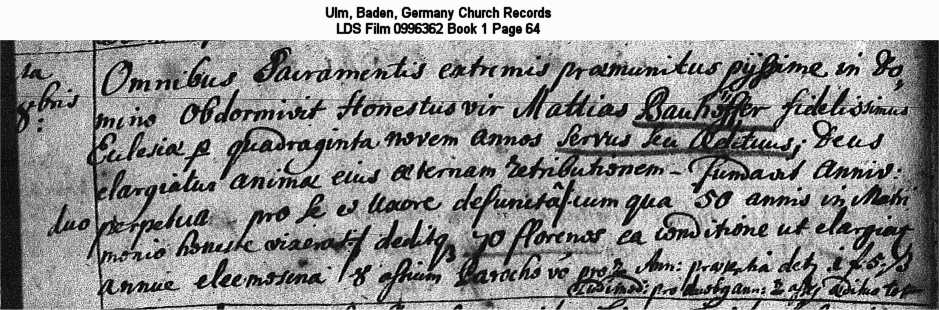 Ulm, Baden, Germany Church Records
LDS Film 0996362 Book 1 Page 64
Omnibus Sacramentis extremis præmunitus pijssime in Do,
mino Obdormivit Honestus vir Mattias Bauhöffer fidelissimus
8bris
Eclesiæ p quadraginta novem annos servus seu Ædituus, Deus
elargiatur animæ eius æternam retributionem – fundavit Anniv:
duo perpetua pro se et Uxore defuncta cum qua 50 annis in Matri
monio honeste vixerat deditq 70 florenos ea conditione ut elargiat
annue eleemosina 8 Parocho vo pro Ann: